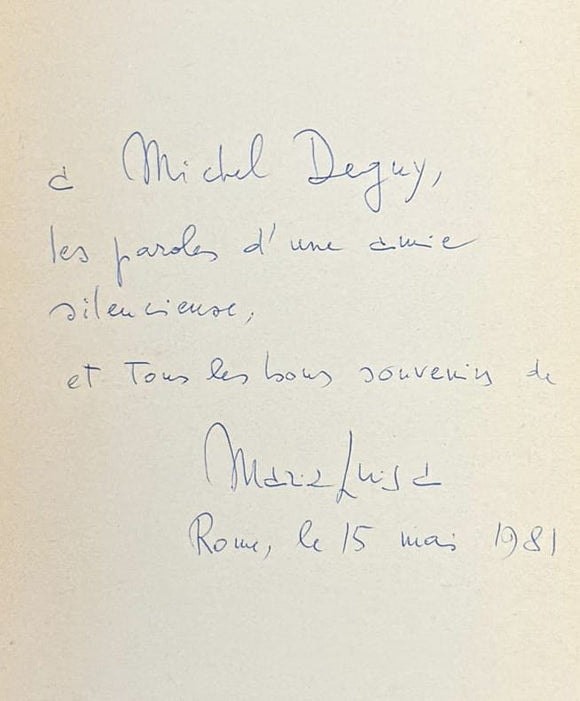 à Michel Deguy,
les paroles d'une amie
silencieuse,
et Tous les bons souvenirs de
Maria Luisa
Rome, le 15 mai 1981